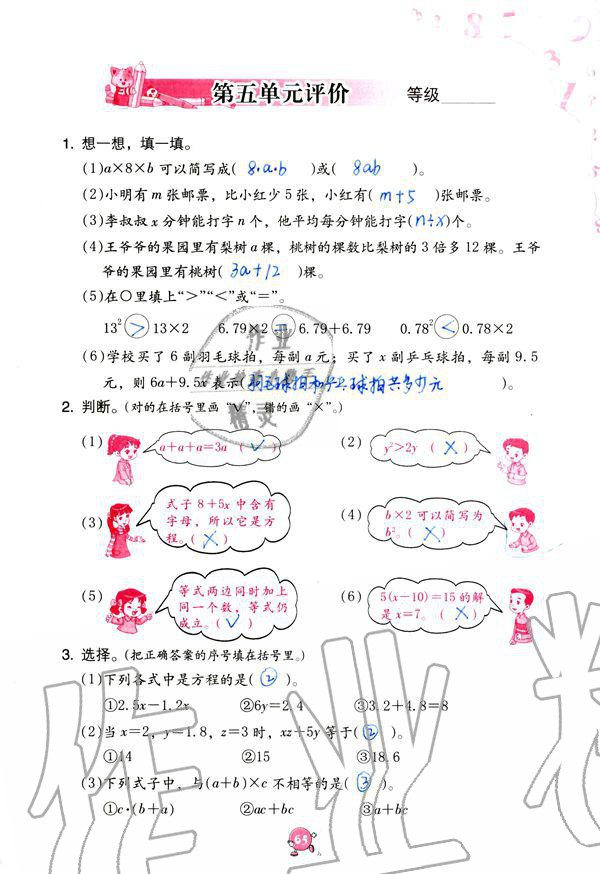 第五单元评价 等级
1. 想一想，填一填。
(1)a×8×b可以简写成( 8·a·b )或( 8ab )。
(2)小明有m张邮票，比小红少5张，小红有( m+5 )张邮票。
(3)李叔叔x分钟能打字n个，他平均每分钟能打字(n÷x)个。
(4)王爷爷的果园里有梨树a棵，桃树的棵数比梨树的3倍多12棵。王爷
爷的果园里有桃树( 3a+12 )棵。
(5)在○里填上“>”“<”或“=”。
13² > 13×2 6.79×2 = 6.79+6.79 0.78² < 0.78×2
(6)学校买了6副羽毛球拍，每副a元；买了x副乒乓球拍，每副9.5
元，则6a+9.5x表示(羽毛球拍和乒乓球拍共多少元 )。
2. 判断。(对的在括号里画“√”，错的画“×”。)
(1) a+a+a=3a ( √ )
(2) y²>2y ( × )
(3) 式子8+5x中含有
字母，所以它是方
程。( × )
(4) b×2可以简写为
b²。( × )
(5) 等式两边同时加上
同一个数，等式仍
成立。( √ )
(6) 5(x-10)=15的解
是x=7。( × )
3. 选择。(把正确答案的序号填在括号里。)
(1)下列各式中是方程的是( ② )。
①2.5x-1.2x ②6y=2.4 ③3.2+4.8=8
(2)当x=2，y=1.8，z=3时，xz+5y等于( ② )。
①14 ②15 ③18.6
(3)下列式子中，与(a+b)×c不相等的是( ③ )。
①c·(b+a) ②ac+bc ③a+bc
65
作业
精灵